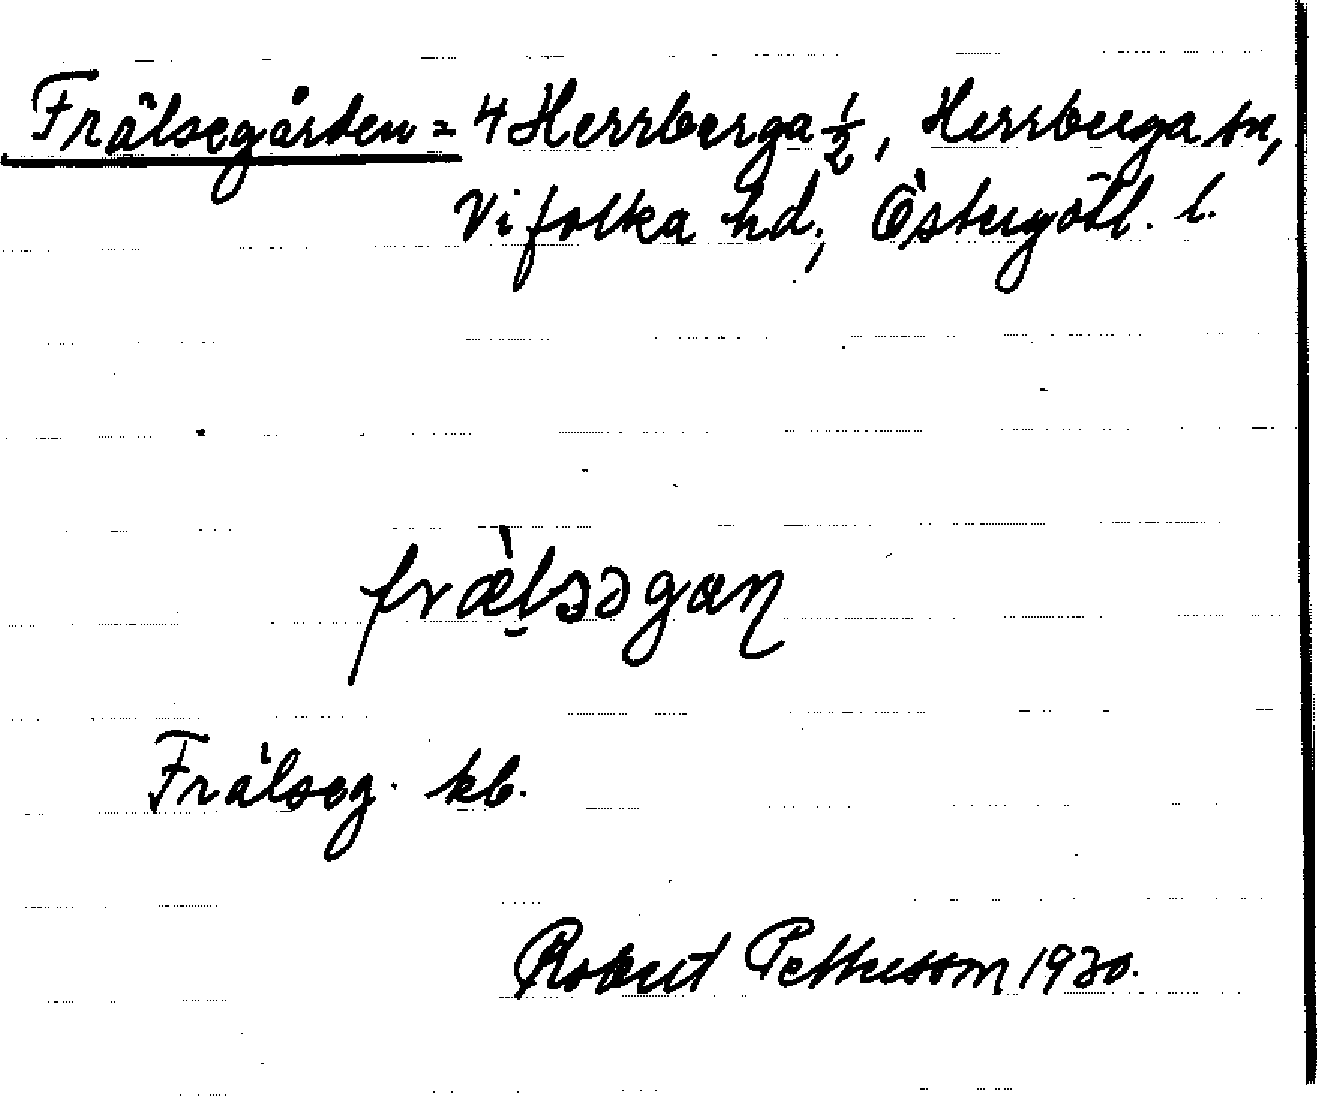 Frälsegården = 4 Herrberga ½, Herrberga sn,
Vifolka hd, Östergötl. l.
fræ̀lsəgaɳ
Frälseg. kb.
Robert Pettersson 1930.